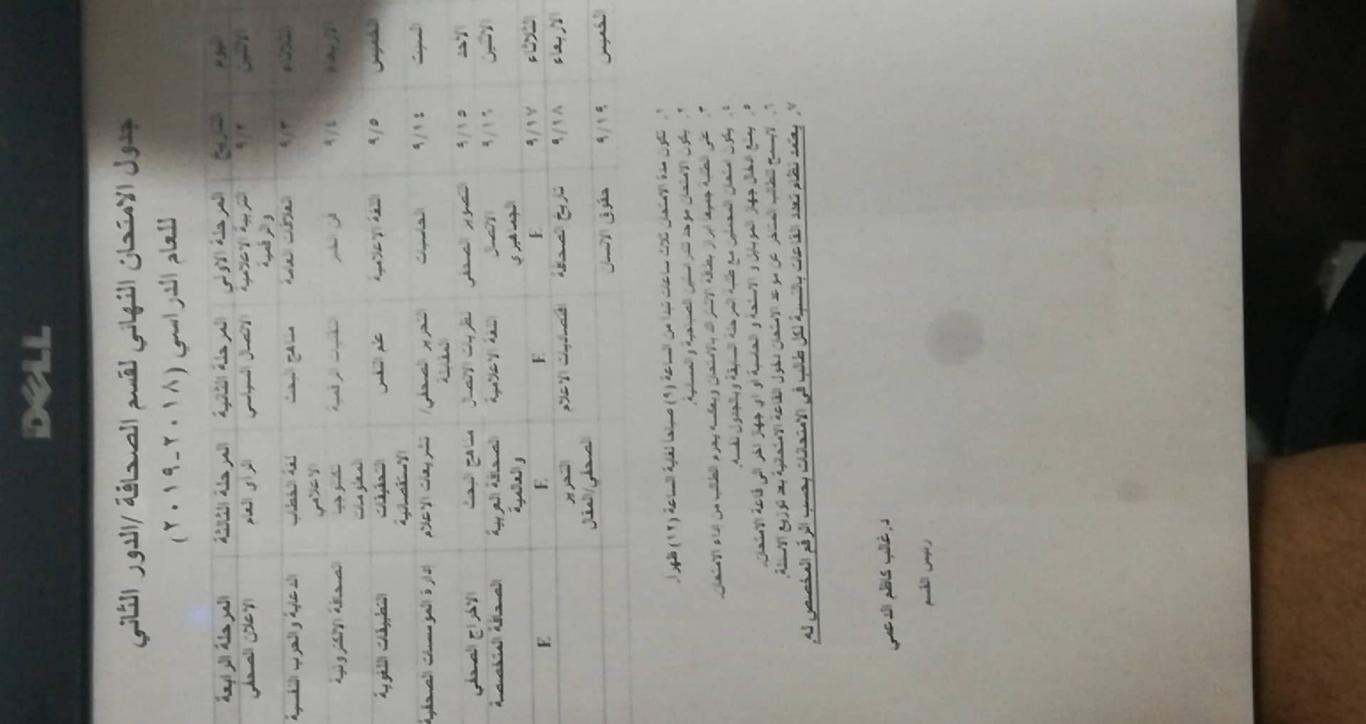 DELL
جدول الامتحان النهائي لقسم الصحافة /الدور الثاني
للعام الدراسي (٢٠١٨-٢٠١٩)
اليوم التاريخ المرحلة الاولى المرحلة الثانية المرحلة الثالثة المرحلة الرابعة
الاثنين ٩/٢ التربية الاعلامية والرقمية الاتصال السياسي الراي العام الاعلان الصحفي
الثلاثاء ٩/٣ العلاقات العامة مناهج البحث لغة الخطاب الاعلامي الدعاية والحرب النفسية
الاربعاء ٩/٤ فن الخبر التقنيات الرقمية تكنلوجيا المعلومات الصحافة الالكترونية
الخميس ٩/٥ اللغة الاعلامية علم النفس التحقيقات الاستقصائية التطبيقات اللغوية
السبت ٩/١٤ الحاسبات التحرير الصحفي/ المقابلة تشريعات الاعلام إدارة المؤسسات الصحفية
الاحد ٩/١٥ التصوير الصحفي نظريات الاتصال مناهج البحث الاخراج الصحفي
الاثنين ٩/١٦ الاتصال الجماهيري اللغة الاعلامية الصحافة العربية والعالمية الصحافة المتخصصة
الثلاثاء ٩/١٧ E E E E
الاربعاء ٩/١٨ تاريخ الصحافة اقتصاديات الاعلام التحرير الصحفي/المقال
الخميس ٩/١٩ حقوق الانسان
١. تكون مدة الامتحان ثلاث ساعات تبدا من الساعة (٩) صباحا لغاية الساعة (١٢) ظهرا.
٢. يكون الامتحان موحد للدراستين الصباحية والمسائية.
٣. على الطلبة جميعا ابراز بطاقة الاشتراك بالامتحان وبعكسه يحرم الطالب من اداء الامتحان.
٤. يكون امتحان المحملين مع طلبة المرحلة السابقة وبالجدول نفسه.
٥. يمنع ادخال جهاز الموبايل و الاستنسخة و الحاسبة او اي جهاز اخر الى قاعة الامتحان.
٦. لايسمح للطالب المتاخر عن موعد الامتحان دخول القاعة الامتحانية بعد توزيع الاسئلة.
٧. يعتمد نظام تعدد القاعات بالنسبة لكل طالب في الامتحانات بحسب الرقم المخصص له.
د.غالب كاظم الدعمي
رئيس القسم